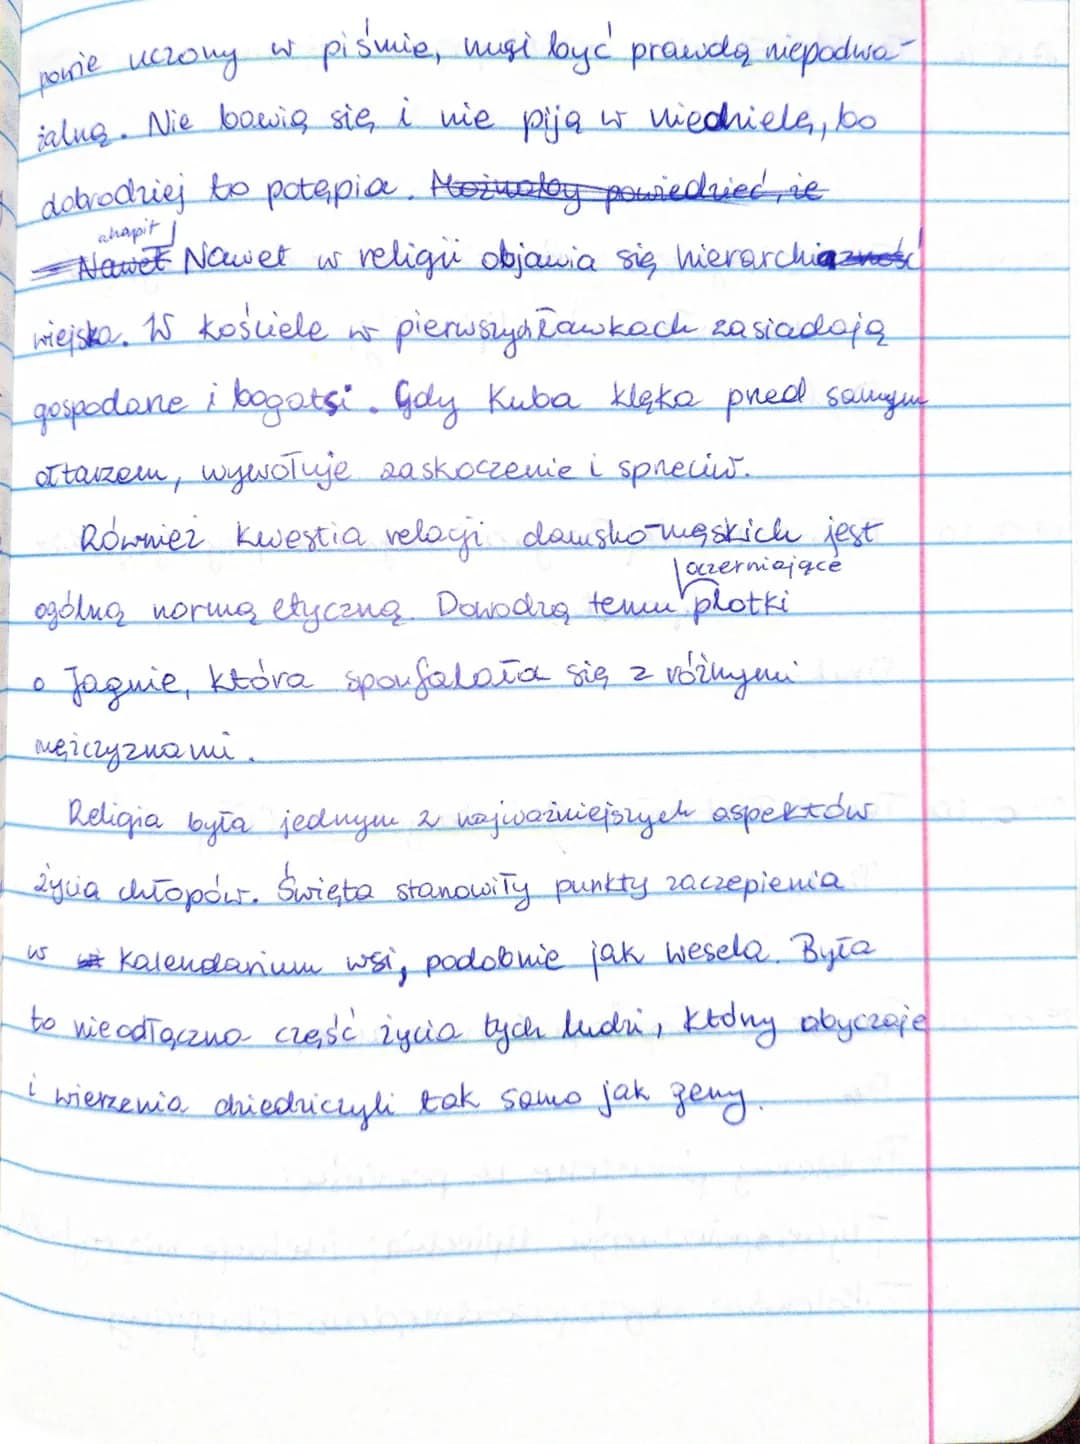 powie uczony w piśmie, musi być prawdą niepodwa-
żalną. Nie bawią się i nie piją w niedzielę, bo
dobrodziej to potępia. Możnaby powiedzieć, że
akapit
Nawet Nawet w religii objawia się hierarchiczność
wiejska. W kościele w pierwszych ławkach zasiadają
gospodarze i bogatsi. Gdy Kuba klęka przed samym
ołtarzem, wywołuje zaskoczenie i sprzeciw.
Również kwestia relacji damsko-męskich jest
oczerniające
ogólną normą etyczną. Dowodzą temu plotki
o Jagnie, która spoufalała się z różnymi
mężczyznami.
Religia była jednym z najważniejszych aspektów
życia chłopów. Święta stanowiły punkty zaczepienia
w kalendarium wsi, podobnie jak wesela. Była
to nieodłączna część życia tych ludzi, którzy obyczaje
i wierzenia dziedziczyli tak samo jak geny.